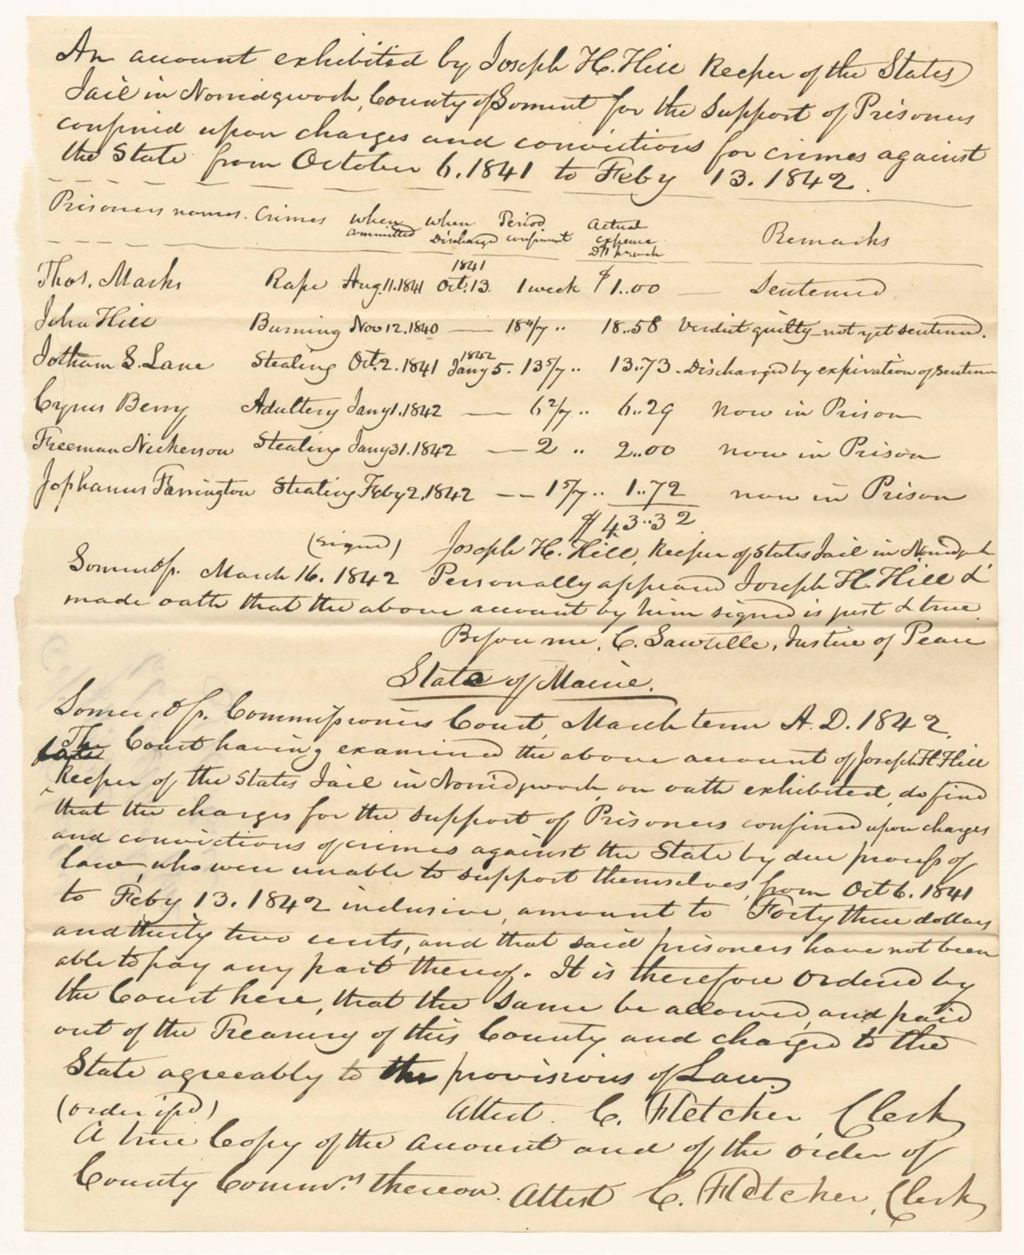 An account exhibited by Joseph H. Hill Keeper of the States
Jail in Norridgwock, County of Somerset for the Support of Prisoners
confined upon charges and convictions for crimes against
the State from October 6. 1841 to Feby 13. 1842.
Prisoners names. Crimes when committed when Discharged Period confinement Actual expense Remarks
Thos. Marks Rape Aug. 11. 1841 1841 Oct. 13. 1 week $1..00 — Sentenced
John Hill Burning Nov 12. 1840 — 18 4/7 .. 18..58 Verdict guilty - not yet sentenced.
Jotham S. Lane Stealing Oct. 2. 1841 1842 Jany 5. 13 5/7 .. 13..73 - Discharged by expiration of Sentence
Cyrus Berry Adultery Jany 1. 1842 — 6 2/7 .. 6..29 now in Prison
Freeman Nickerson Stealing Jany 31. 1842 — 2 .. 2..00 now in Prison
Farrington Stealing Feby 2. 1842 — 1 5/7 .. 1..72 now in Prison
$43..32
(signed) Joseph H. Hill, Keeper of States Jail in Norridgwock
Somerset ss. March 16. 1842 Personally appeared Joseph H. Hill &
made oath that the above account by him signed is just & true.
Before me, C. Sawtelle, Justice of Peace
State of Maine.
Somerset ss. Commissioners Court, March term A. D. 1842.
The Court having examined the above account of Joseph H Hill
Keeper of the States Jail in Norridgwock, on oath exhibited, do find
that the charges for the support of Prisoners confined upon charges
and convictions of crimes against the State by due process of
law, who were unable to support themselves, from Oct 6. 1841
to Feby 13. 1842 inclusive, amount to Forty three dollars
and thirty two cents, and that said prisoners have not been
able to pay any part thereof. It is therefore Ordered by
the Court here, that the same be allowed, and paid
out of the Treasury of this County and charged to the
State agreeably to the provisions of Law.
(order issd) Attest. C. Fletcher, Clerk
A true Copy of the account and of the order of
County Commrs. thereon. Attest C. Fletcher, Clerk